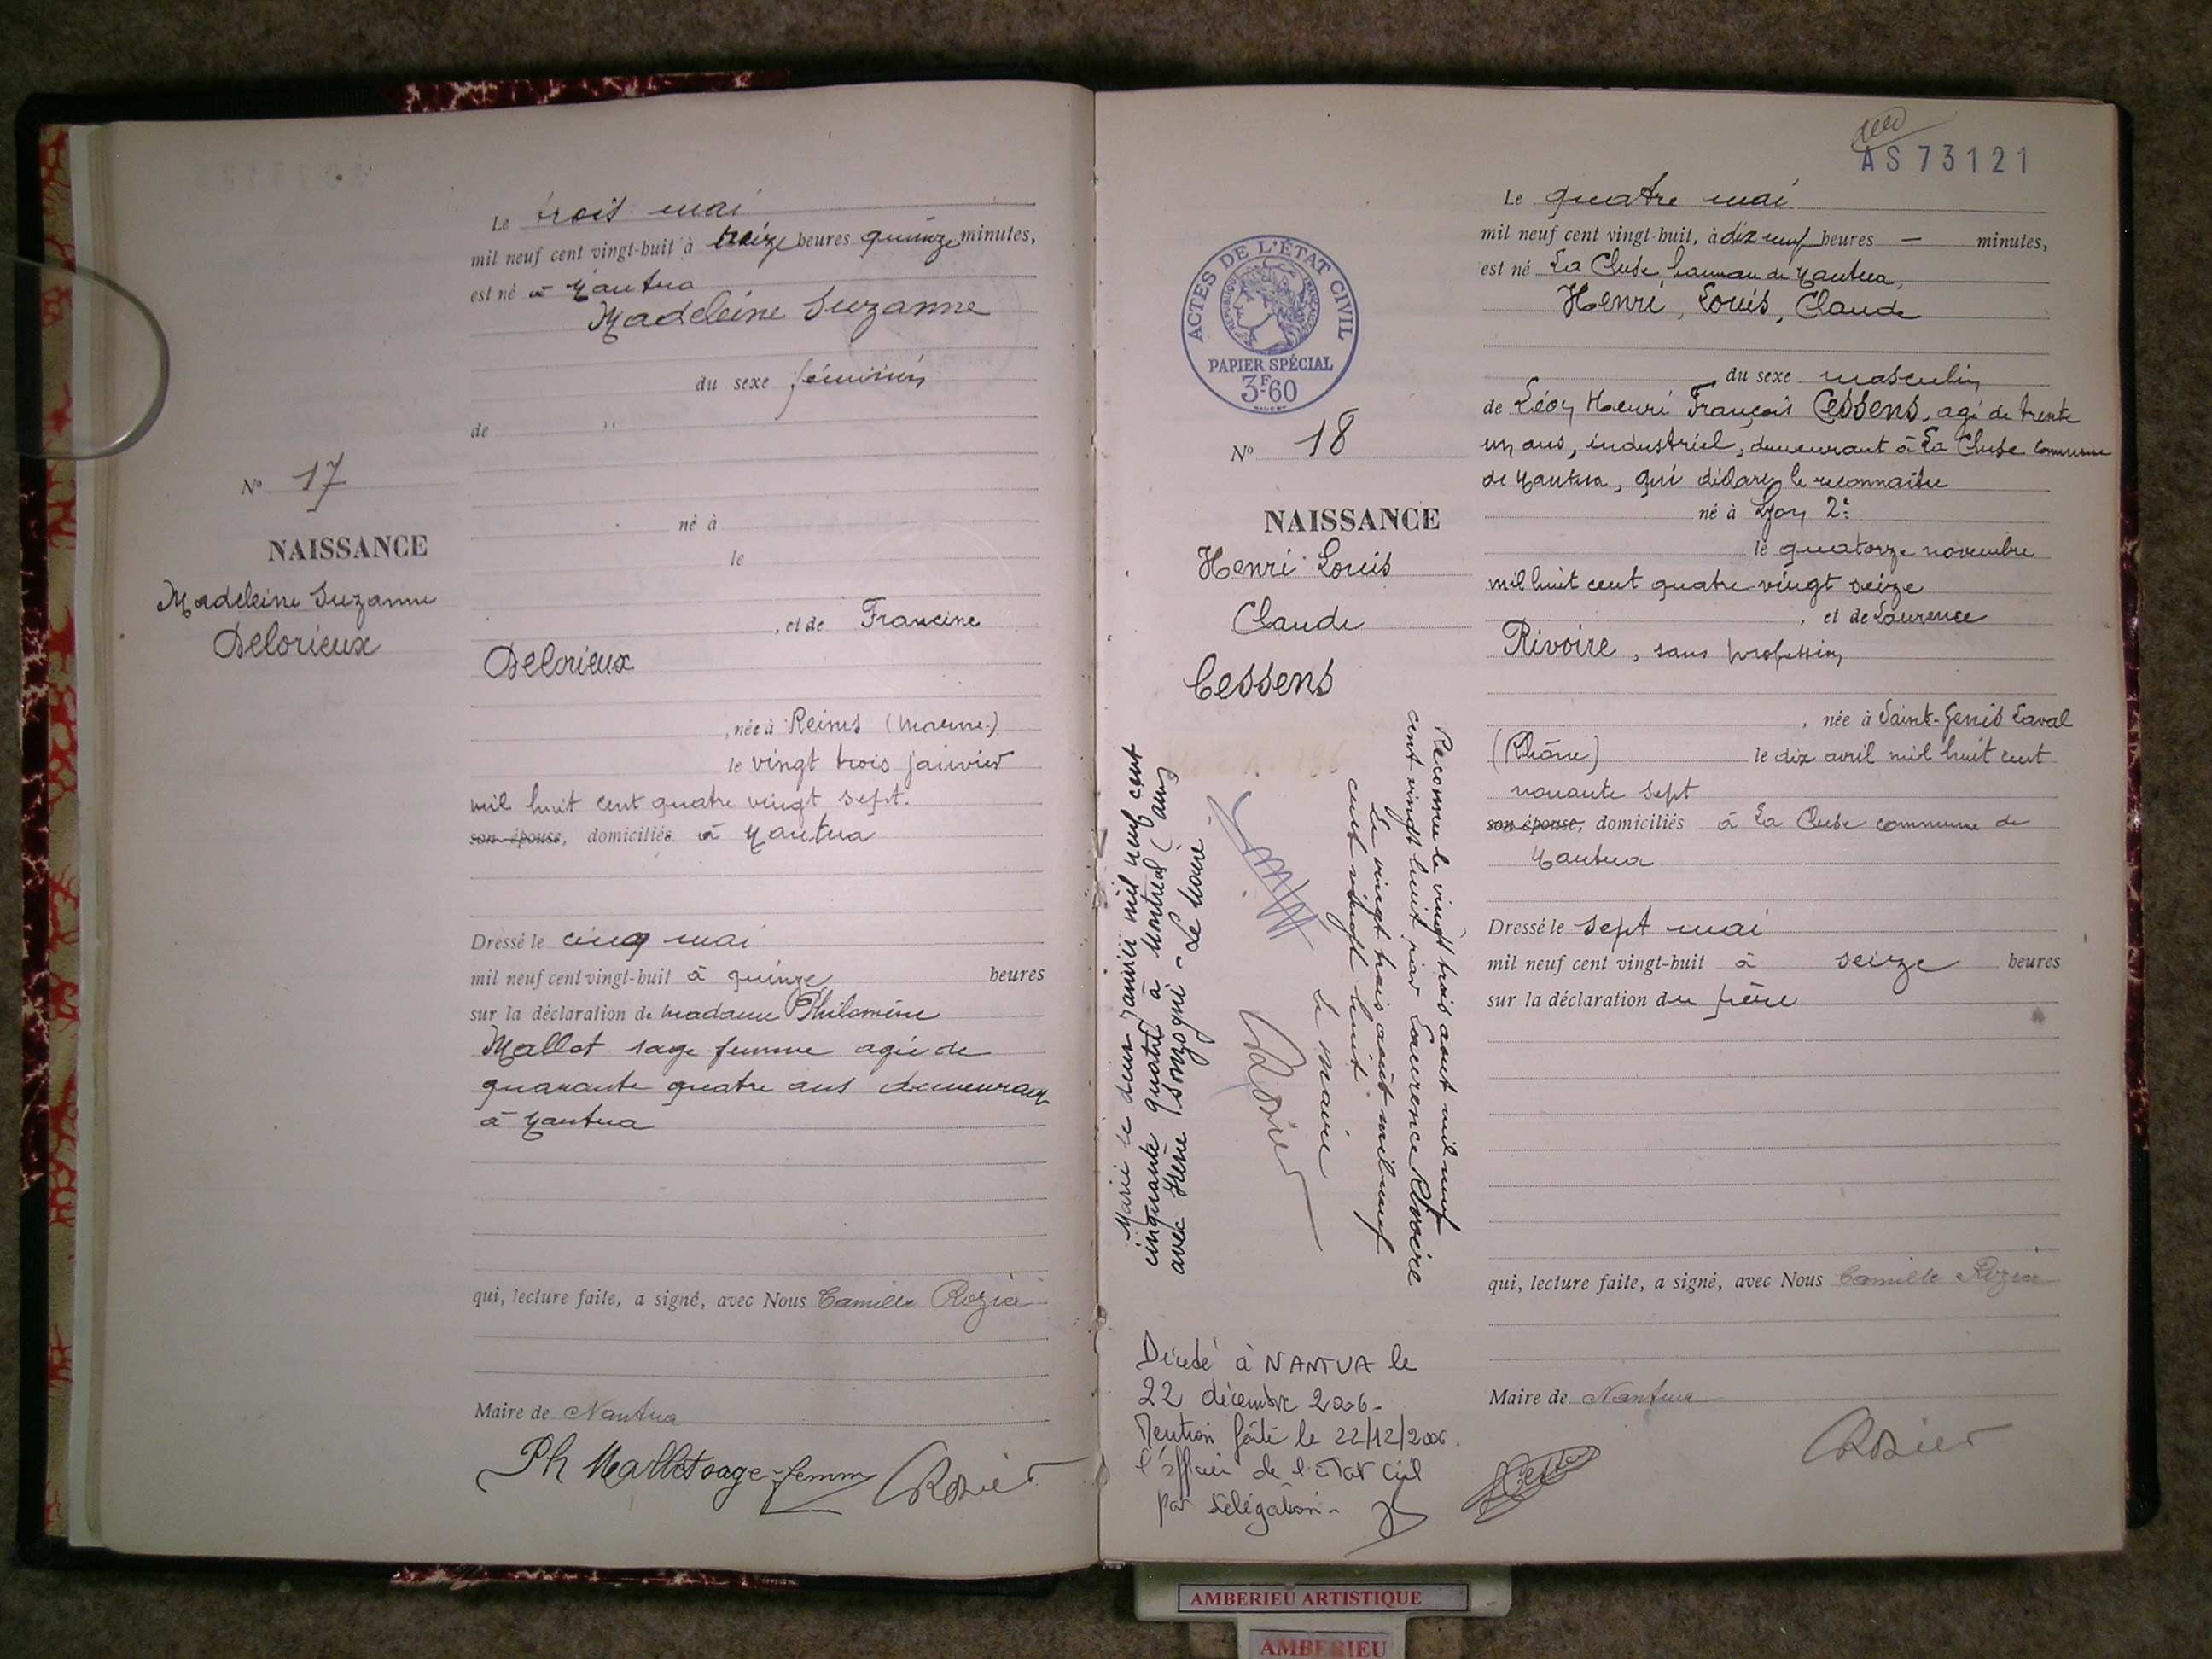 Le trois mai
mil neuf cent vingt-huit à treize heures quinze minutes,
est né à Nantua
Madeleine Suzanne
du sexe féminin
de "
né à
le
, et de Francine
Delorieux
, née à Reims (Marne)
le vingt trois janvier
mil huit cent quatre vingt sept.
son épouse, domiciliés à Nantua
Dressé le cinq mai
mil neuf cent vingt-huit à quinze heures
sur la déclaration de madame Philomène
Mallet sage femme agée de
quarante quatre ans demeurant
à Nantua
qui, lecture faite, a signé, avec Nous Camille Rozier
Maire de Nantua
Ph Mallet sage-femme CRozier
N° 17
NAISSANCE
Madeleine Suzanne
Delorieux
AS 73121
ACTES DE L'ÉTAT CIVIL
RÉPUBLIQUE FRANÇAISE
PAPIER SPÉCIAL
3F-60
N° 18
NAISSANCE
Henri Louis
Claude
Cessens
Reconnu le vingt trois aout mil neuf
cent vingt huit par Laurence Rivoire
Le vingt trois août mil neuf
cent vingt huit.
Le maire
CRozier
Marié le deux janvier mil neuf cent
cinquante quatre à Montréal (Ain)
avec Irène Sonzogni - Le Maire
Décédé à NANTUA le
22 décembre 2006-
Mention faite le 22/12/2006.
l'officier de l'Etat Civil
par délégation-
Le quatre mai
mil neuf cent vingt-huit, à dix neuf heures — minutes,
est né La Cluse hameau de Nantua,
Henri, Louis, Claude
du sexe masculin
de Léon Henri François Cessens, agé de trente
un ans, industriel, demeurant à La Cluse commune
de Nantua, qui déclare le reconnaitre
né à Lyon 2e
le quatorze novembre
mil huit cent quatre vingt seize
, et de Laurence
Rivoire, sans profession
, née à Saint-Genis Laval
(Rhône) le dix avril mil huit cent
nonante sept
son épouse, domiciliés à La Cluse commune de
Nantua
Dressé le sept mai
mil neuf cent vingt-huit à seize heures
sur la déclaration du père
qui, lecture faite, a signé, avec Nous Camille Rozier
Maire de Nantua
CRozier
AMBERIEU ARTISTIQUE
AMBERIEU